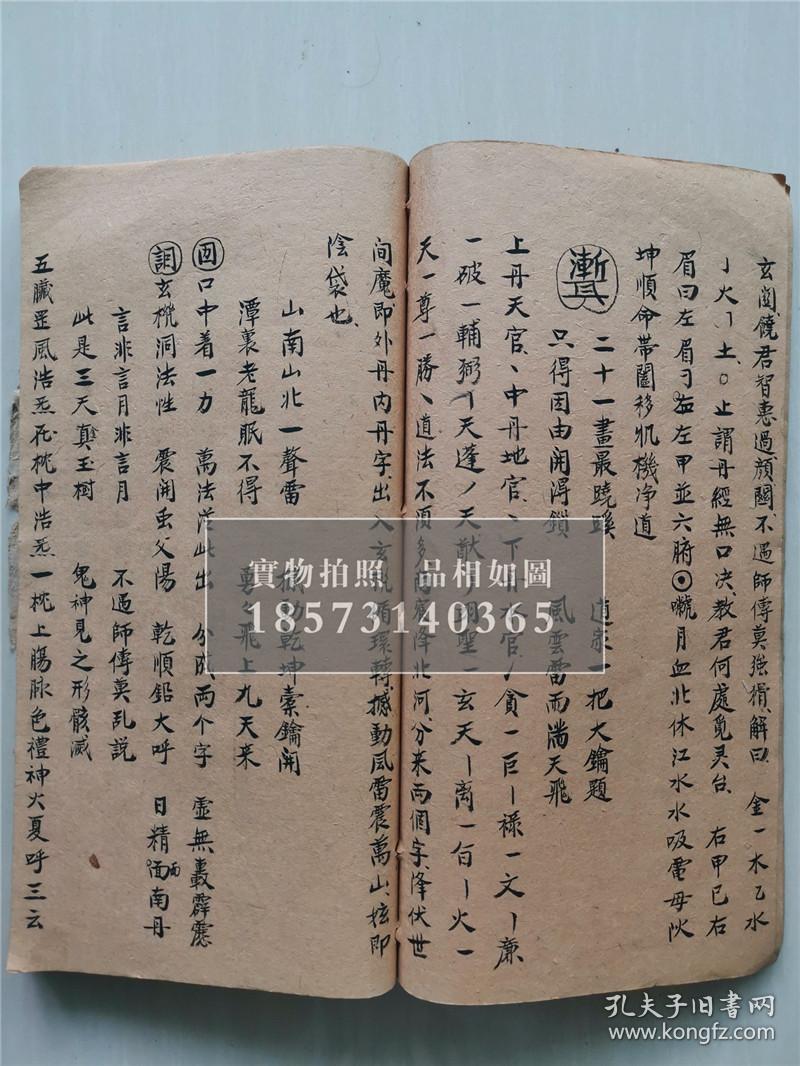 玄関饒君智惠過顔閔不遇師傅莫強猜解曰 金一木乙水
丿火丨土○止謂丹經無口决教君何處覓灵台 右甲已右
眉曰左眉 左甲並六腑⊙ 月血北休江水水吸電母
坤順命帶闔移 機净道
二十一畫最蹺蹊 道家一把大鑰題
只得因由開得鎖 風雲雷雨满天飛
上丹天官、中丹地官、下丹水官丿貪一巨丨禄一文丨廉
一破一輔弼丨天蓬丿天猷 翊聖一玄天丨离一 丨火一
天一尊一勝、道法不須多 降北河分来两個字降伏世
间魔即外丹内丹字出入玄 循環轉撼動風雷震萬山 即
陰袋也
山南山北一聲雷 撼动乾坤 鑰開
潭裏老龍眠不得 飛上九天来
口中着一力 萬法從此出 分成両个字 虚無轟霹靂
玄 洞法性 震開 父陽 乾順鉛大呼 日精 南丹
言非言月非言月 不遇師傅莫乱説
此是三天真玉樹 鬼神見之形骸滅
五臟罡風浩炁 中浩炁一 上腸脉色禮神火夏呼三云
實物拍照 品相如圖
18573140365
孔夫子旧書网
www.kongfz.com